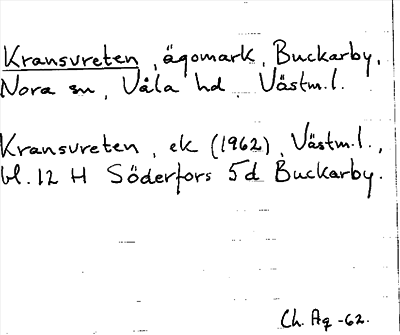 Kransvreten, ägomark, Buckarby,
Nora sn, Våla hd, Västm.l.
Kransvreten, ek (1962), Västm.l.,
bl. 12 H Söderfors 5d Buckarby.
Ch. Ag -62.